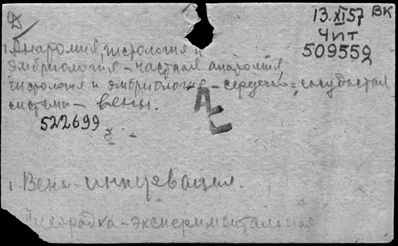 13.XI57 ВК
Чит
509552
1. Анатомия, гистология и
эмбриология - частная анатомия,
гистология и эмбриология - сердечно=сосудистая
система - вены.
522699
1. Вены - иннервация.
Лихорадка - экспериментальная